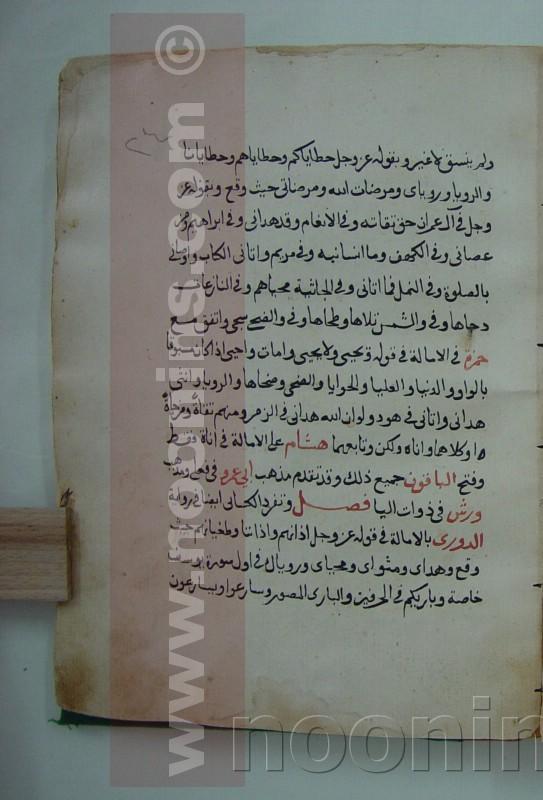 ولم ينسق لا غير وبقوله عز وجل خطاياكم وخطاياهم وخطايانا
والرويا ورؤياي ومرضات الله ومرضاتي حيث وقع وبقوله عز
وجل في آل عمران حق تقاته وفي الانعام وقد هداني وفي ابراهيم ومن
عصاني وفي الكهف وما انسانيه وفي مريم واتاني الكتاب واوصاني
بالصلوة وفي النمل فما اتاني وفي الجاثية محياهم وفي النازعات
دحاها وفي والشمس تلاها وطحاها وفي والضحى سجى واتفق مع
حمزة في الامالة في قوله ويحيى ولا يحيى وامات واحيى اذا كان منسوقا
بالواو والدنيا والعليا والحوايا والضحى وضحاها والربوا وانني
هداني واتاني في هود ولو ان الله هداني في الزمر ومنهم تقاة ومزجاة
او كلاهما واناه ولكن وتابعهما هشام على الامالة في اناة فقط
وفتح الباقون جميع ذلك وقد تقدم مذهب ابي عمرو في فعلى ومذهب
ورش في ذوات اليا فصل وتفرد الكسائي ايضا في رواية
الدوري بالامالة في قوله عز وجل اذانهم واذاننا وطغيانهم حيث
وقع وهداي ومثواي ومحياي ورؤياك في اول سورة يوسف
خاصة وباريكم في الحرفين والباري المصور وسارعوا ويسارعون
© www.noorlib.com
noorin